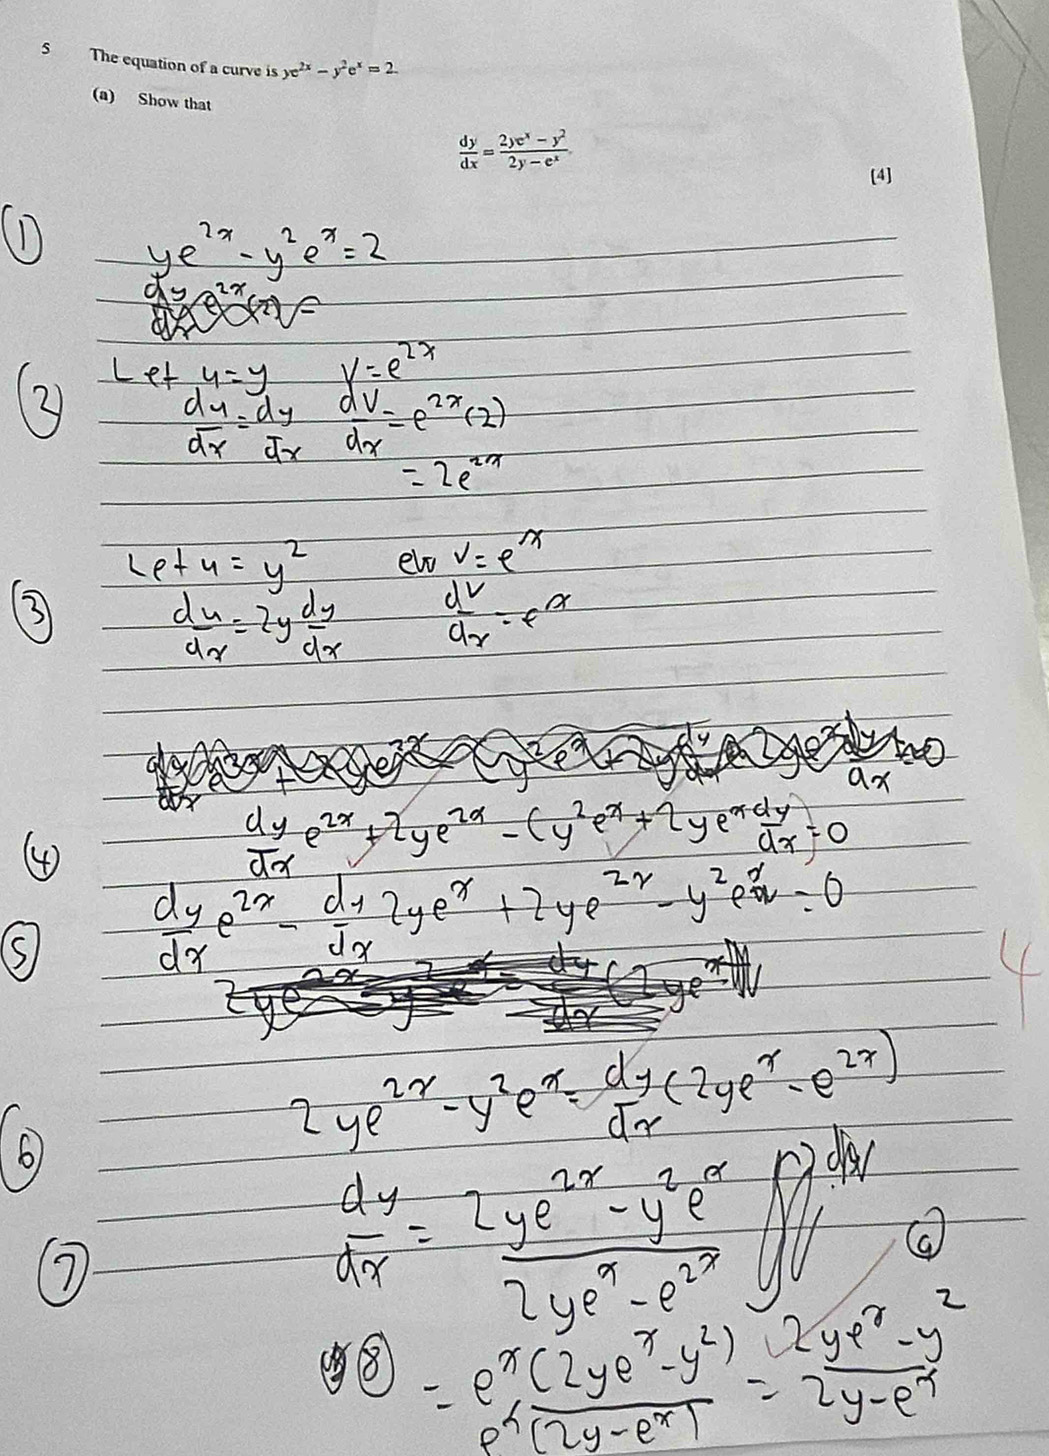 5 The equation of a curve is ye^{2x} − y²e^x = 2.
(a) Show that
dy/dx = (2ye^x − y²)/(2y − e^x).
[4]
① ye^{2x} - y²e^x = 2
② Let u = y   v = e^{2x}
du/dx = dy/dx   dv/dx = e^{2x}(2)
= 2e^{2x}
Let u = y²   v = e^x
③ du/dx = 2y dy/dx   dv/dx = e^x
④ dy/dx e^{2x} + 2ye^{2x} - (y²e^x + 2ye^x dy/dx) = 0
⑤ dy/dx e^{2x} - dy/dx 2ye^x + 2ye^{2x} - y²e^x = 0
4
⑥ 2ye^{2x} - y²e^x = dy/dx (2ye^x - e^{2x})
⑦ dy/dx = (2ye^{2x} - y²e^x)/(2ye^x - e^{2x})
⑧ = e^x(2ye^x - y²)/e^x(2y - e^x) = (2ye^x - y²)/(2y - e^x)